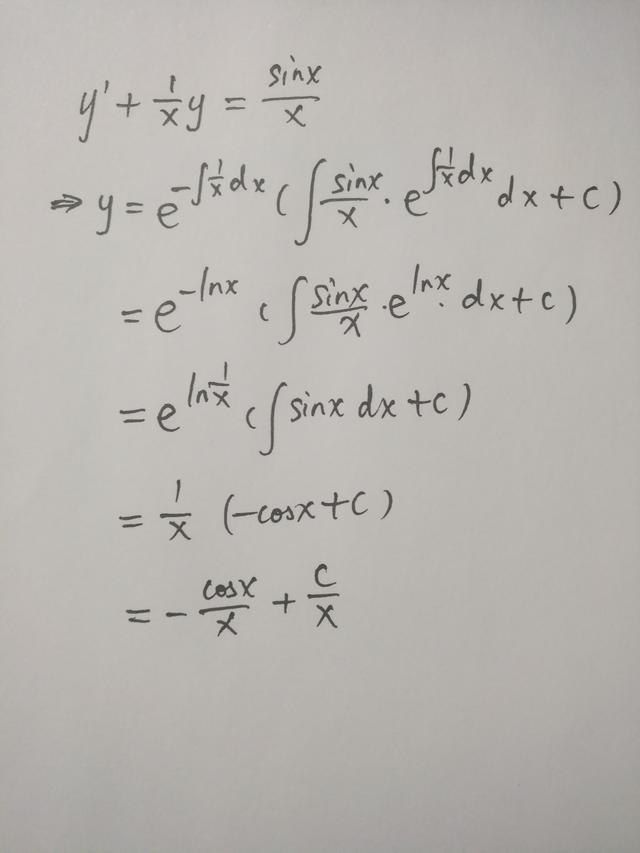 y' + 1/x y = sinx/x
⇒ y = e^(-∫1/x dx) (∫ sinx/x · e^(∫1/x dx) dx + C)
= e^(-lnx) (∫ sinx/x · e^(lnx) · dx + C)
= e^(ln 1/x) (∫ sinx dx + C)
= 1/x (-cosx + C)
= - cosx/x + C/x